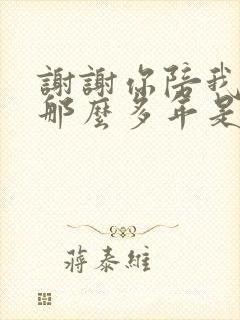 謝謝你陪我
那麼多年是
蔣泰維